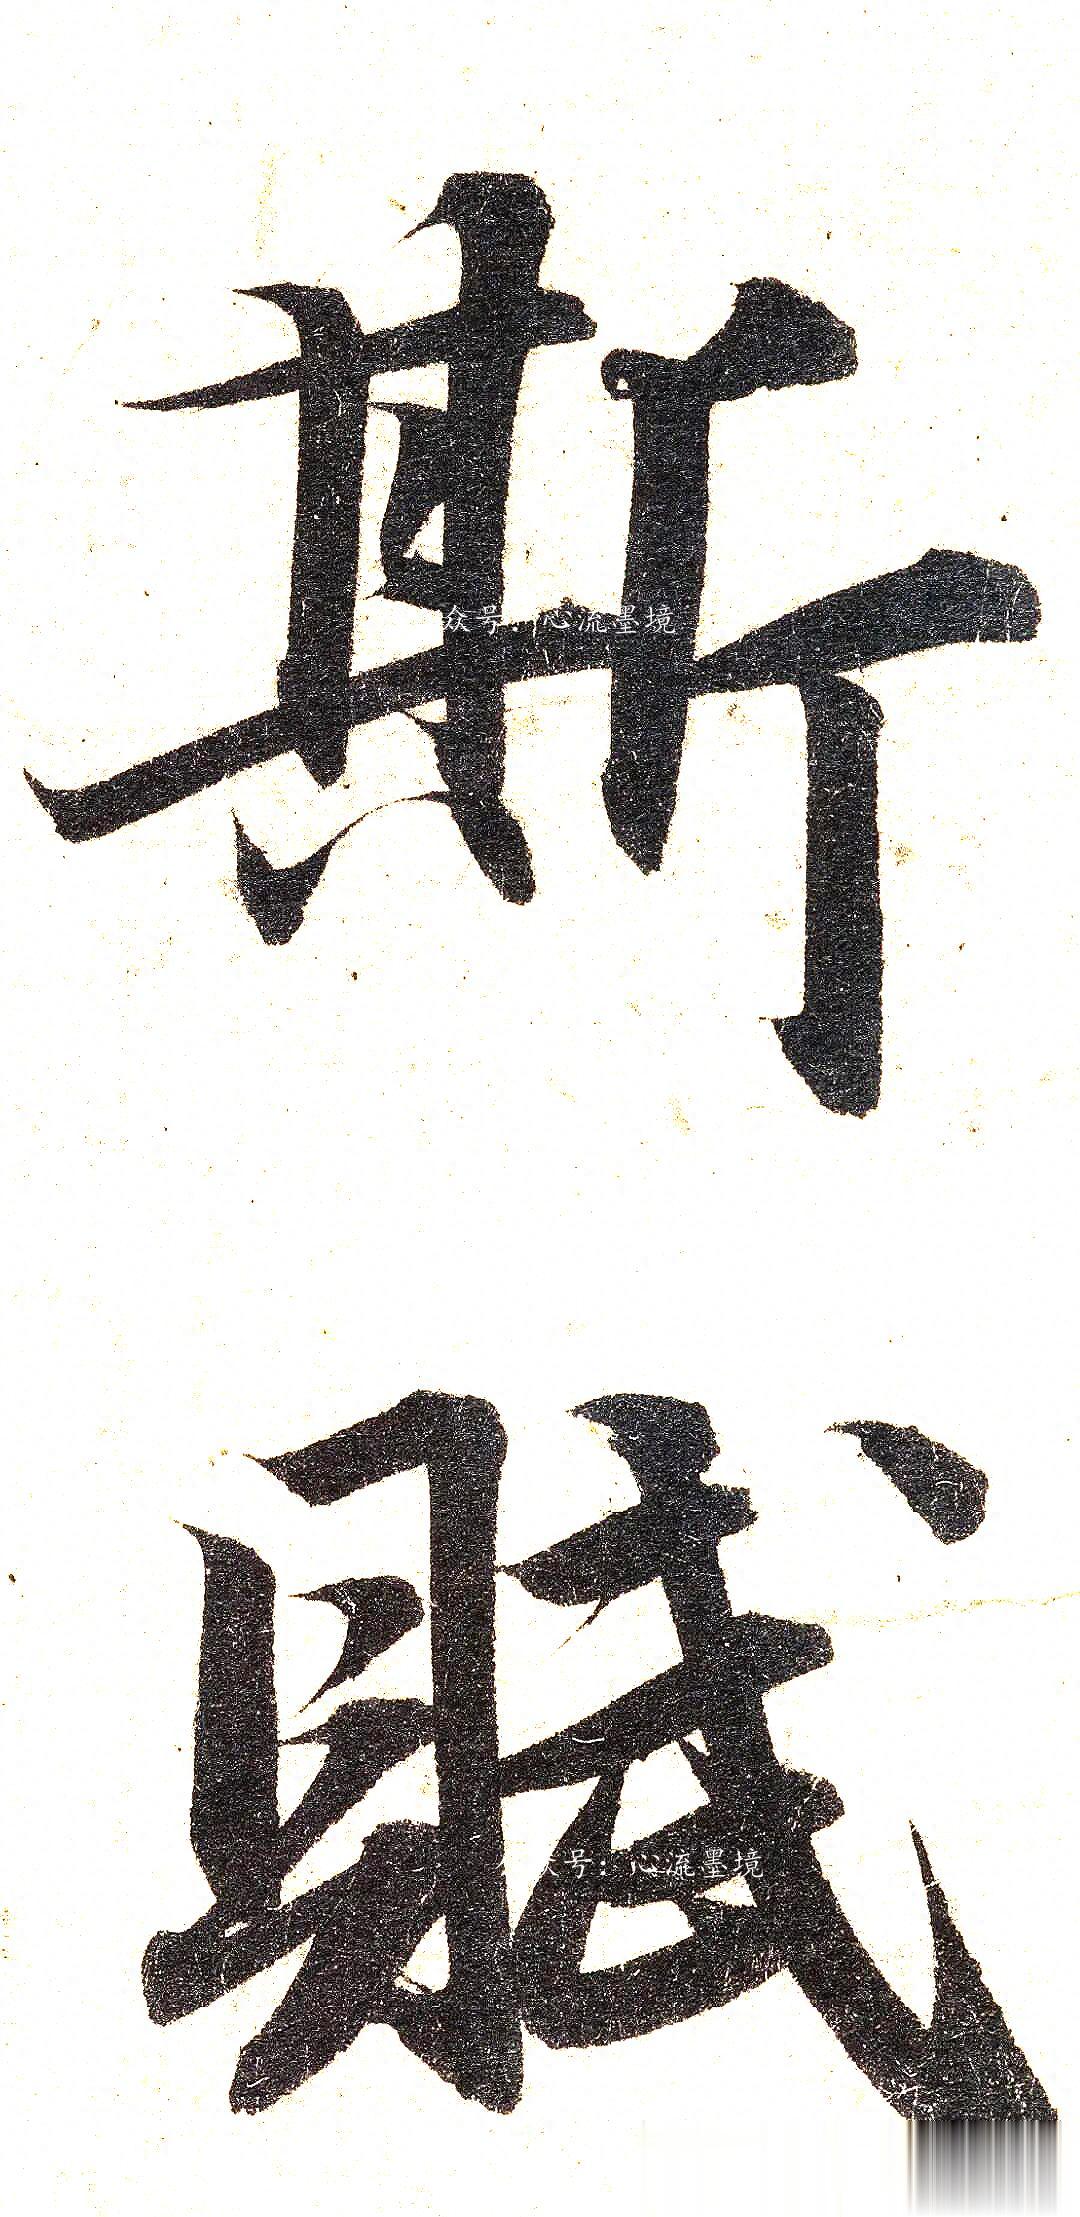 斯
众号：心流墨境
賦
众号：心流墨境